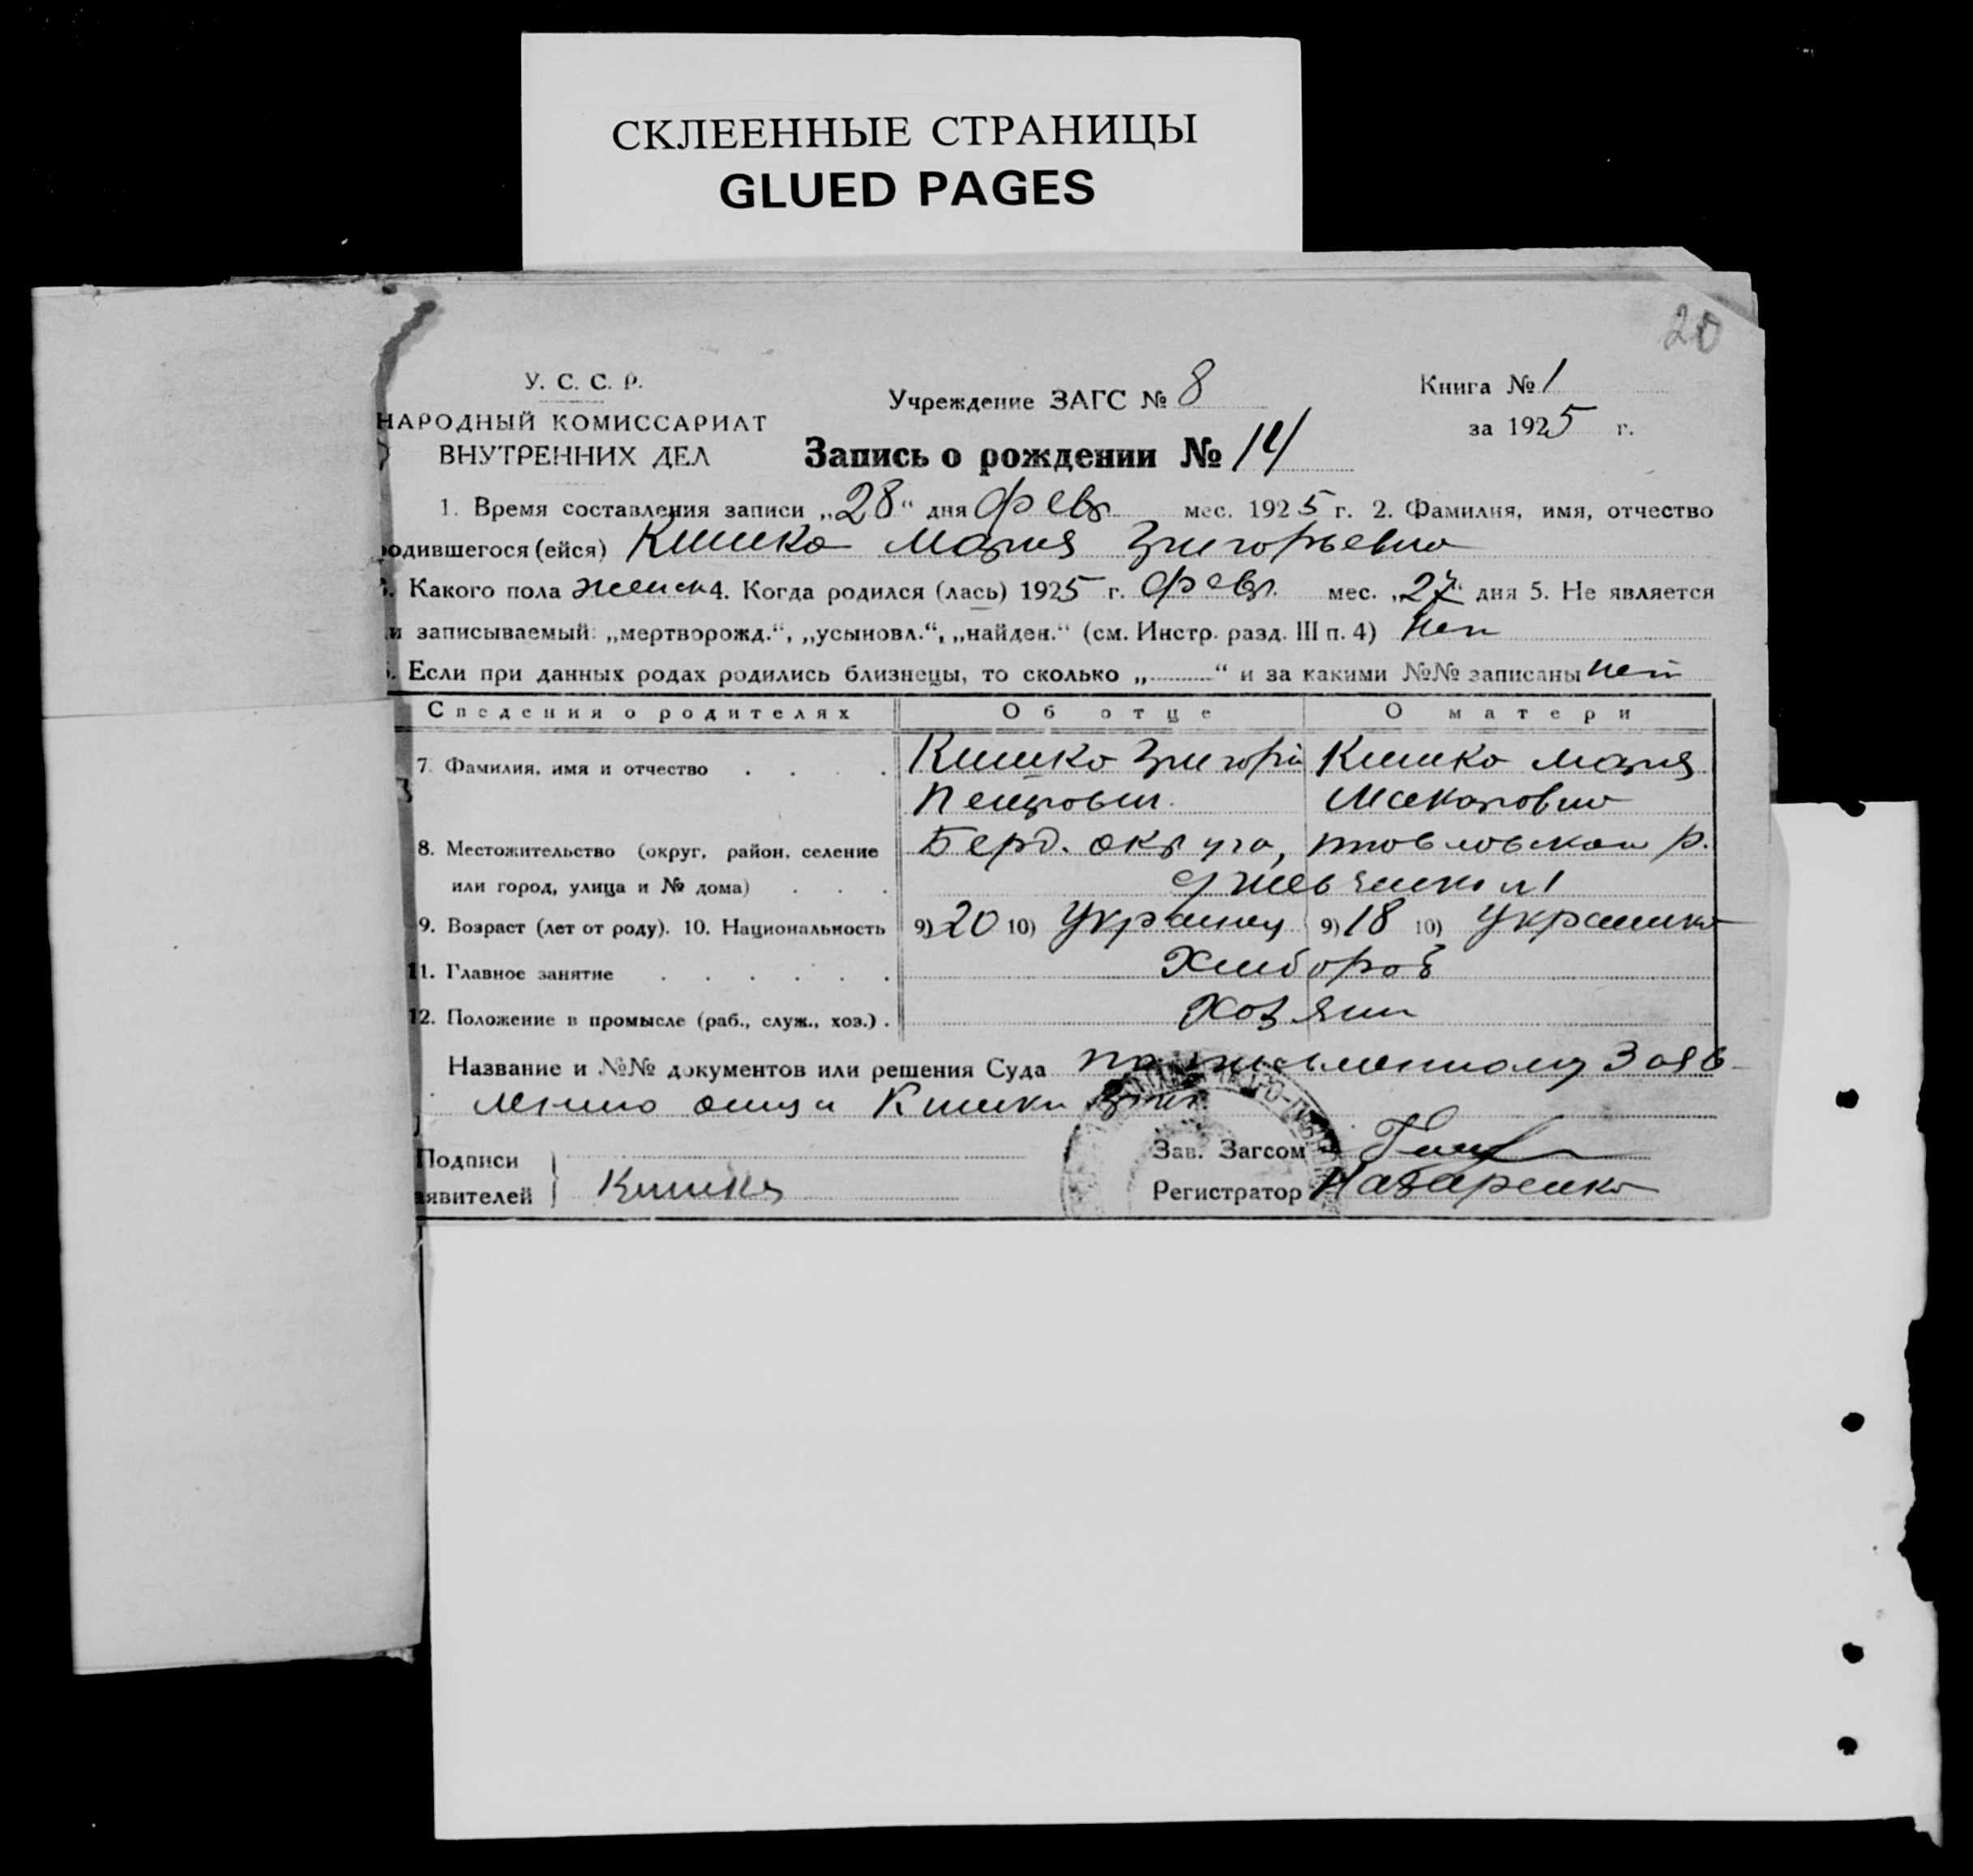 СКЛЕЕННЫЕ СТРАНИЦЫ
GLUED PAGES
20
У. С. С. Р.
НАРОДНЫЙ КОМИССАРИАТ
ВНУТРЕННИХ ДЕЛ
Учреждение ЗАГС № 8
Книга № 1
за 1925 г.
Запись о рождении № 14
1. Время составления записи „28“ дня Февр. мес. 1925 г. 2. Фамилия, имя, отчество
одившегося (ейся) Кишка Мария Григорьевна
Какого пола женск 4. Когда родился (лась) 1925 г. Февр. мес. „27“ дня 5. Не является
и записываемый: „мертворожд.“, „усыновл.“, „найден.“ (см. Инстр. разд. III п. 4) Нет
Если при данных родах родились близнецы, то сколько „.........“ и за какими №№ записаны Нет
Сведения о родителях Об отце О матери
7. Фамилия, имя и отчество Кишка Григорий Кишка Мария
Петрович. Макаровна
8. Местожительство (округ, район, селение Берд. округа, р.
или город, улица и № дома)
9. Возраст (лет от роду). 10. Национальность 9) 20 10) Украинец 9) 18 10) Украинка
11. Главное занятие Хлібороб
12. Положение в промысле (раб., служ., хоз.). Хозяин
Название и №№ документов или решения Суда по письменному Заяв-
лению отца Кишки Григ.
Подписи
аявителей Кишка
Зав. Загсом
Регистратор Назаренко